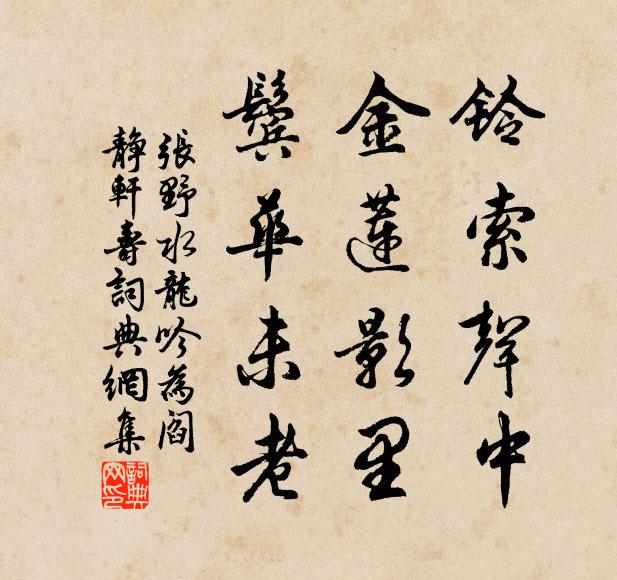 鈴索聲中
金蓮影里
鬢華未老
張野水龍吟為閻
靜軒壽詞典網集
詞典网印